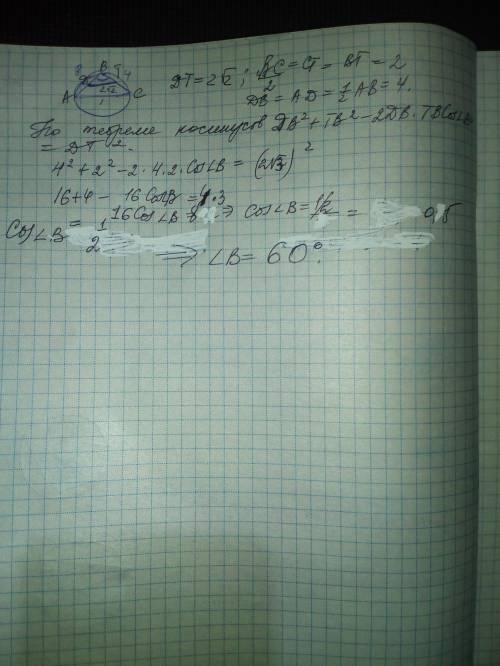 8 B T 4
D 2√2
A C
DT = 2√2 ; BC/2 = CT = BT = 2
DB = AD = 1/2 AB = 4.
По теореме косинусов DB² + TB² - 2DB · TB Cos∠B
= DT².
4² + 2² - 2 · 4 · 2 · Cos∠B = (2√3)²
16 + 4 - 16 CosB = 4 · 3
16 Cos∠B ⇒ Cos∠B = = 0,5
Cos∠B = 1/2
⇒ ∠B = 60°.